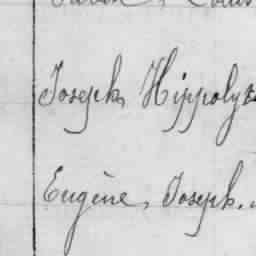 Joseph, Hippoly
Eugène, Joseph.